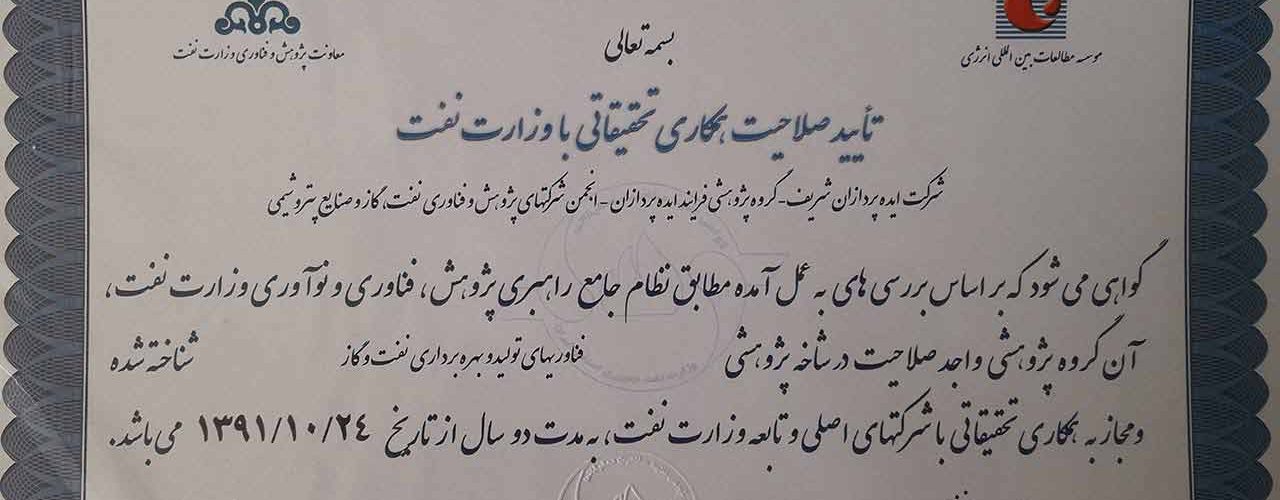 بسمه تعالی
موسسه مطالعات بین المللی انرژی
معاونت پژوهش و فناوری وزارت نفت
تأیید صلاحیت همکاری تحقیقاتی با وزارت نفت
شرکت ایده پردازان شریف - گروه پژوهشی فرایند ایده پردازان - انجمن شرکتهای پژوهش و فناوری نفت، گاز و صنایع پتروشیمی
گواهی می شود که بر اساس بررسی های به عمل آمده مطابق نظام جامع راهبری پژوهش، فناوری و نوآوری وزارت نفت،
آن گروه پژوهشی واجد صلاحیت در شاخه پژوهشی فناوریهای تولید و بهره برداری نفت و گاز شناخته شده
و مجاز به همکاری تحقیقاتی با شرکتهای اصلی و تابعه وزارت نفت، به مدت دو سال از تاریخ ۱۳۹۱/۱۰/۲۴ می باشد.